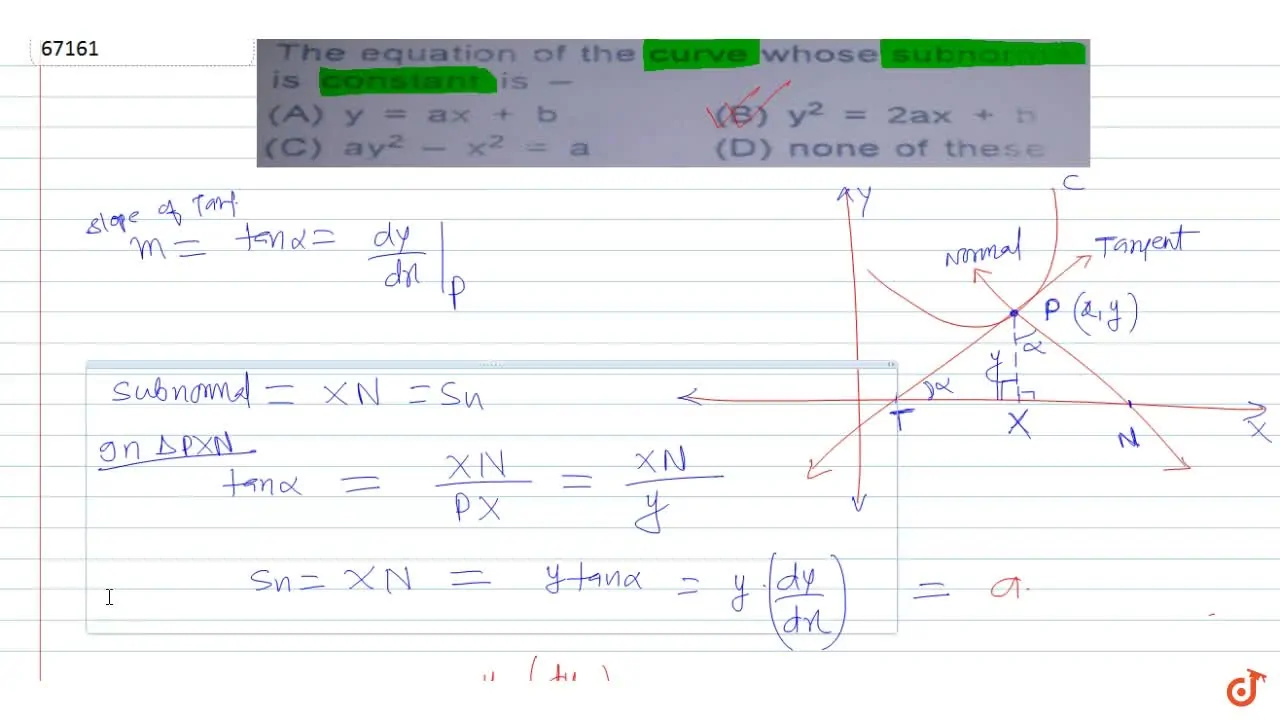 67161
The equation of the curve whose subnormal
is constant is –
(A) y = ax + b (B) y² = 2ax + b
(C) ay² – x² = a (D) none of these
slope of Tan.
m = tanα = dy/dx |P
Y
C
Normal
Tangent
P (x, y)
α
y
α
T
X
N
X
Subnormal = XN = Sn
gn ΔPXN
tanα = XN/PX = XN/y
Sn = XN = y tanα = y·(dy/dx) = a.